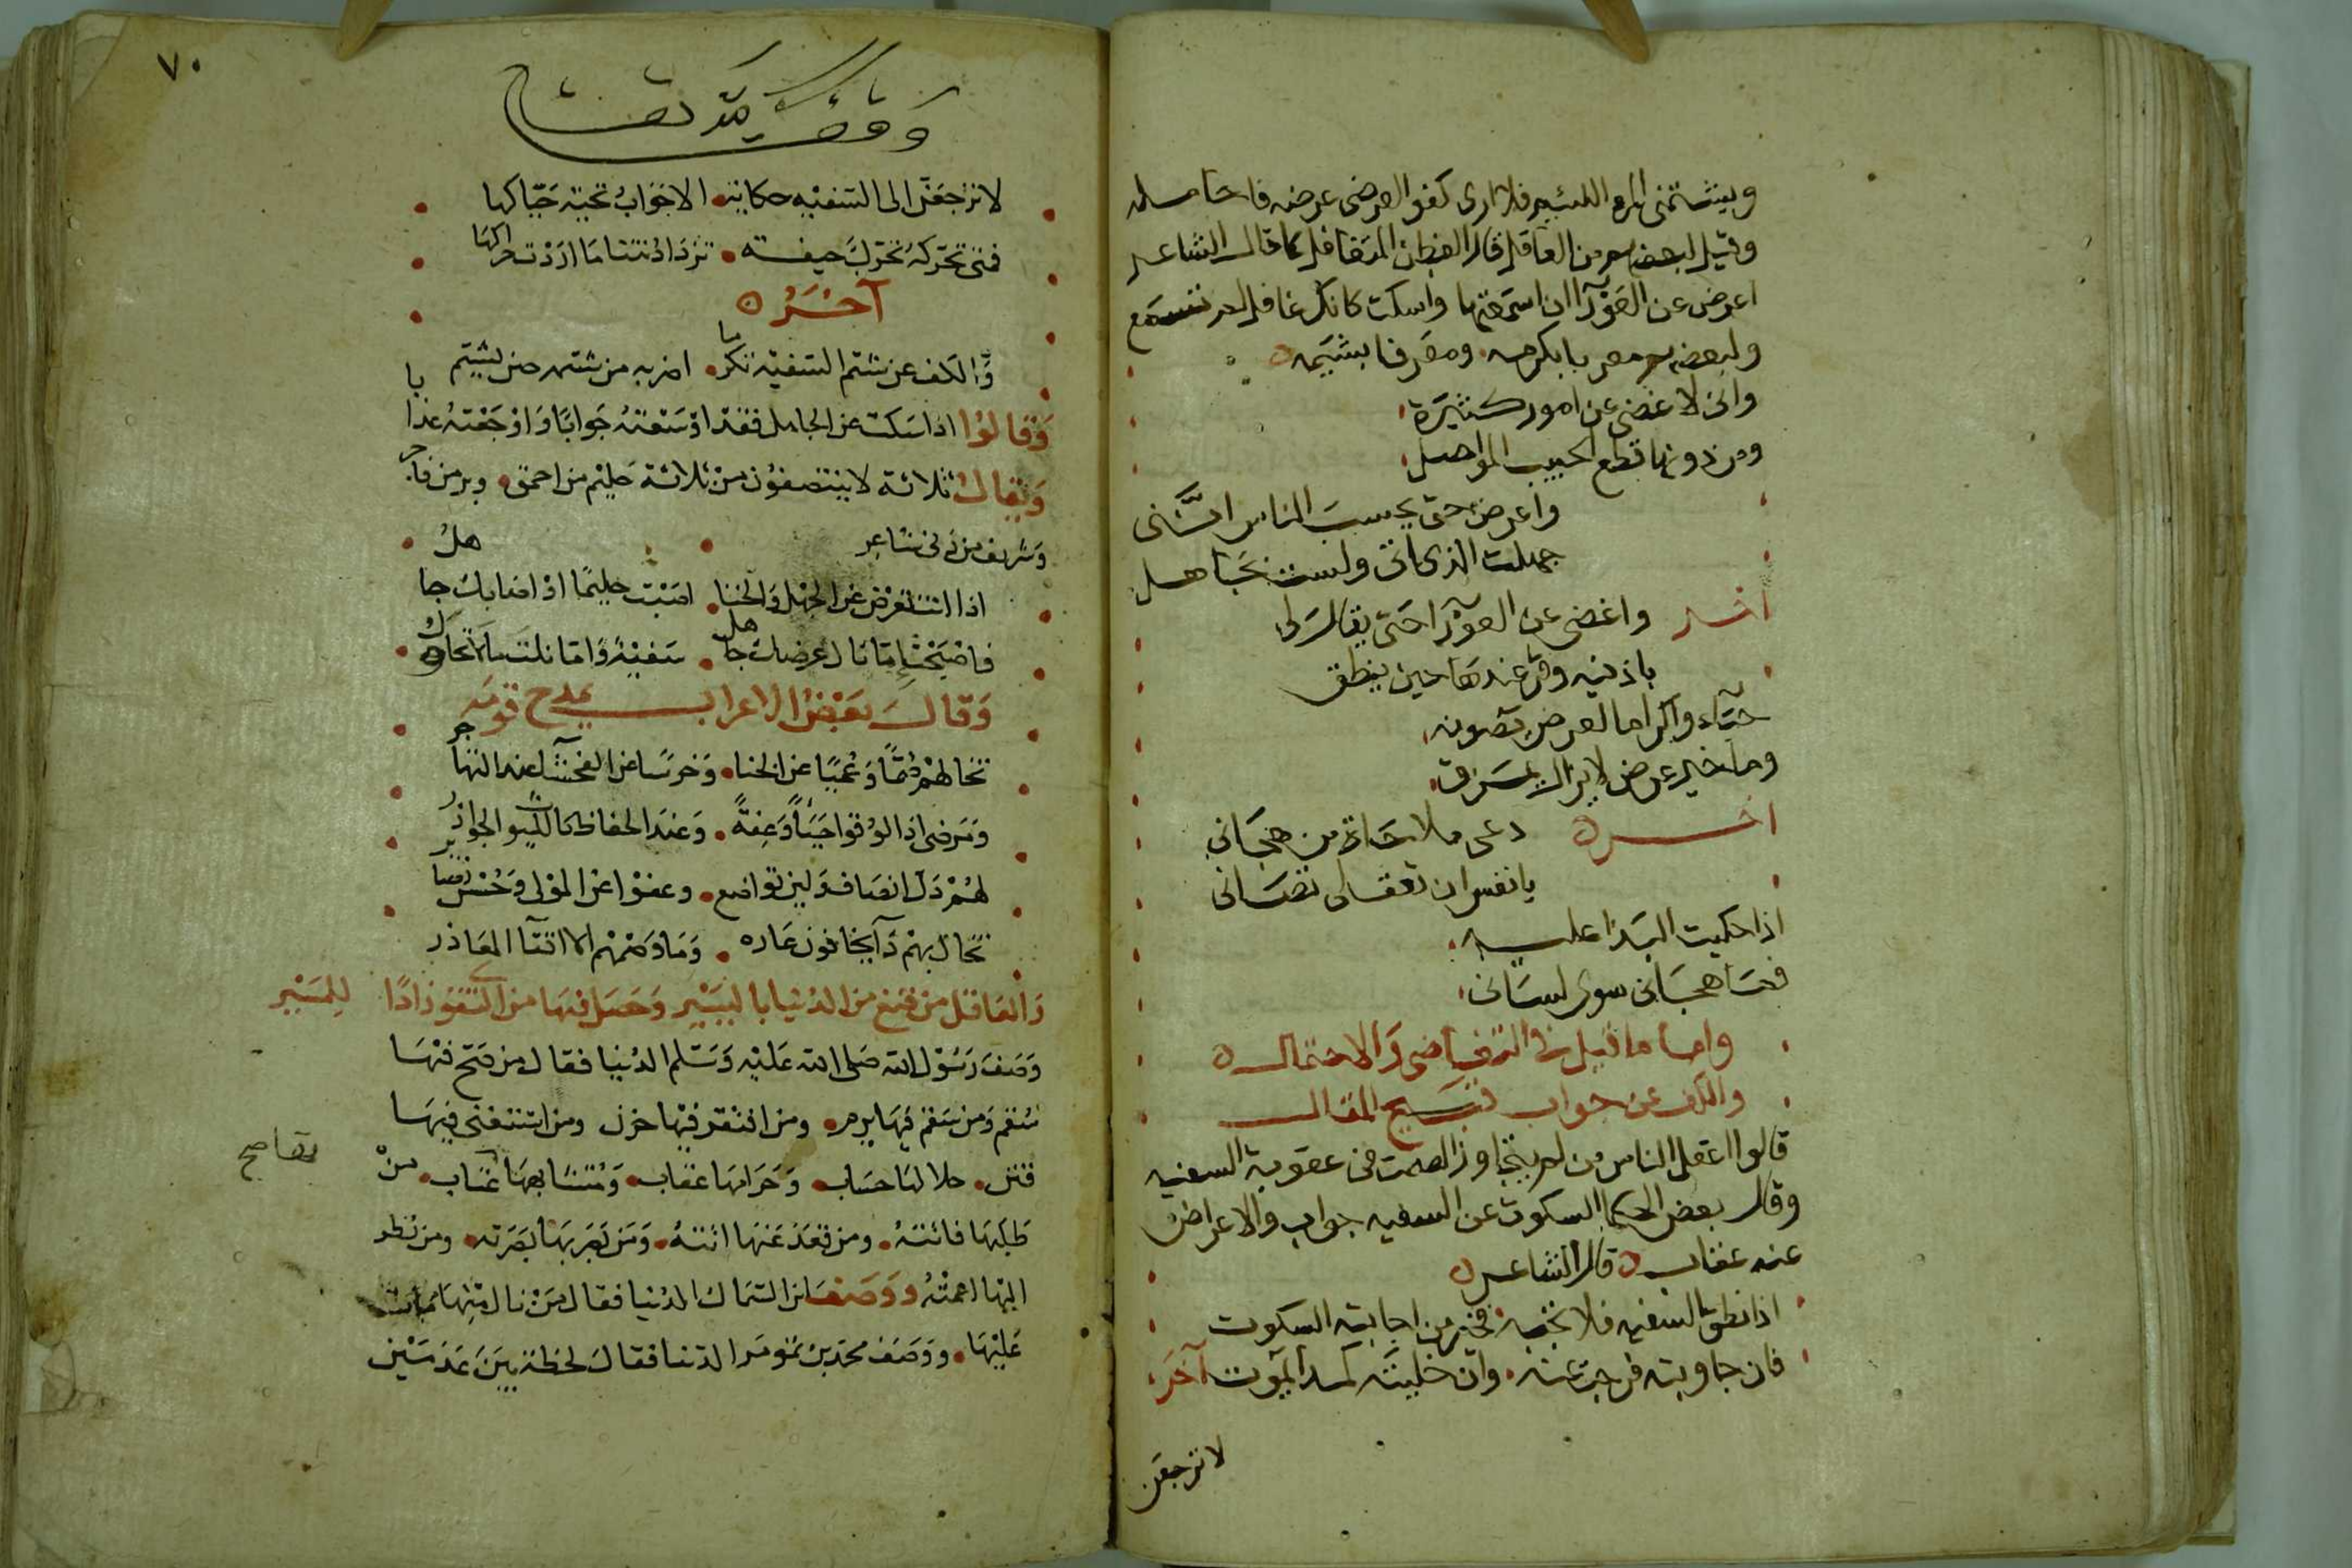 ويشتمنى المرء اللئيم فلا ارى كفوا لعرضى عرضه فاحامله
وقيل لبعضهم من العاقل قال الفطن المتغافل كما قال الشاعر
اعرض عن العورآ ان اسمعتها واسكت كانك غافل لم تسمع
ولبعضهم
وانى لاغضى عن امور كثيرة
ومن دونها قطع الحبيب المواصل
واعرض حتى يحسب الناس انَّنى
جهلت الذى اتى ولست بجاهل
اخر واغضى عن العورآ حتى يقال لى
باذنيه وقر عندها حين ينطق
حيآء واكراما لعرض تصونه
وما خير عرض لا يزال يمزق
اخره دعى ملاحاة من هجانى
يا نفس ان
اذا حكيت البذا عليه
فما هجانى سوى لسانى
واما ما قيل في التغاضى والاحتمال ه
والكف عن جواب قبيح المقال
قالوا اعقل الناس من لم يتجاوز الصمت فى عقوبة السفيه
وقال بعض الحكما السكوت عن السفيه جواب والاعراض
عنه عقاب ه قال الشاعر ه
اذا نطق السفيه فلا تجبه فخير من اجابته السكوت
فان جاوبته فرجت عنه وان خليته كمدا يموت آخر
لا ترجعن
٧٠
لا ترجعَنَّ الى السفيه حكاية الا جَوابُ تحية حَيّاكها
فمتى تحركهُ تحرك جيفة تزداد نتنا ما اردْت حراكها
آخَرُ ه
وَالكف عن شتم السفيه تكرما اضر به من شتمه حين يشتم
وَقالوُا اذا سَكتّ عن الجاهل فقدْ اوْسَعْتهُ جَوابًا وَاوْجَعْتهُ عذابا
وَيقالُ ثلاثة لا ينتصفوُن منْ ثلاثة حَليم من احمق وبر من فاجر
وَشريف من دنى شاعِر
اذا انت لم تعْرض عن الجهْل والخنا اصَبْت حليمًا اوْ اصابك جاهلُ
فاصْبحْتَ اِمّا نال عرضك جاهل سَفيْهٌ وَامّا نلت مالا تحاول
وَقالَ بعَضُ الاعراب يمدح قوْمَه
تخالهمْ صُمًّا وَعُمْيًا عن الخنا وَخرسًا عن الفحشآ عند التهاجر
وَمَرضى اذا لوُقوا حَيَآءً وَعِفةً وَعندَ الحفاظ كالليوث الخوادر
لهُمْ ذلّ انصَاف وَلين تواضع وعفوْا عن المولى وَحُسْن
تخال بهمْ دَآء يخافون عَاره وَمَا وَصْمهُم الا اتقآ المعَاذر
وَالعاقل من قنع من الدنيا باليسير وَحصل فيهَا من التقوى زادًا للمسَيْر
وَصَفَ رَسُول الله صَلى الله عَليْه وَسَلم الدنيا فقال من صَحّ فيْهَا
سَقم وَمن سَقم فيهَا برم ومن افتقر فيهْا حزن ومن اسْتغنى فيهَا
فتن حلالها حسَاب وَحَرامها عقاب وَمُتشابههَا عتَاب منْ
طَلبَهَا فاتتهُ ومن قعَدَ عَنهَا اتتهُ وَمَن بَصَر بهَا بَصّرَته ومن نظر
اليْهَا اعمتْهُ ووَصَفَ ابن السّمّاك الدنيا فقال مَنْ نال مِنْهَا مَات
عَليْهَا ووَصَف محمد بن الدنيا فقالَ لحظة بَيْنَ عَدَمَيْن